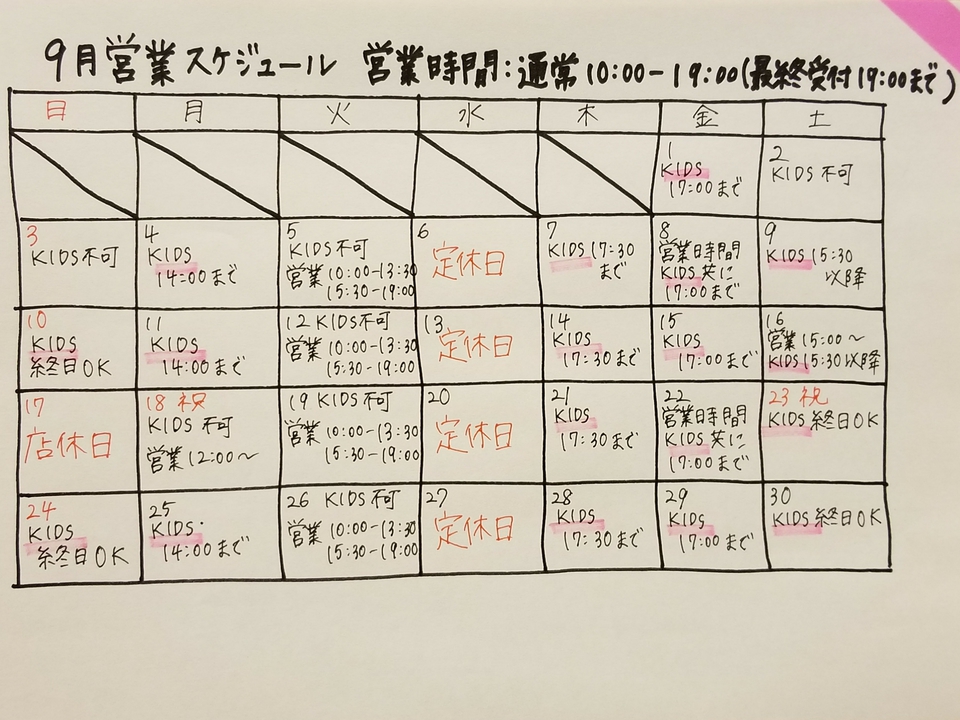 9月営業スケジュール 営業時間:通常10:00-19:00(最終受付19:00まで)
日 月 火 水 木 金 土
1
KIDS
17:00まで
2
KIDS 不可
3
KIDS不可
4
KIDS
14:00まで
5
KIDS不可
営業10:00-13:30
15:30-19:00
6
定休日
7
KIDS 17:30
まで
8
営業時間
KIDS 共に
17:00まで
9
KIDS 15:30
以降
10
KIDS
終日OK
11
KIDS
14:00まで
12 KIDS不可
営業 10:00-13:30
15:30-19:00
13
定休日
14
KIDS
17:30まで
15
KIDS
17:00まで
16
営業15:00〜
KIDS15:30以降
17
店休日
18 祝
KIDS 不可
営業12:00〜
19 KIDS 不可
営業 10:00-13:30
15:30-19:00
20
定休日
21
KIDS
17:30まで
22
営業時間
KIDS 共に
17:00まで
23 祝
KIDS 終日OK
24
KIDS
終日OK
25
KIDS・
14:00まで
26 KIDS 不可
営業 10:00-13:30
15:30-19:00
27
定休日
28
KIDS
17:30まで
29
KIDS
17:00まで
30
KIDS 終日OK